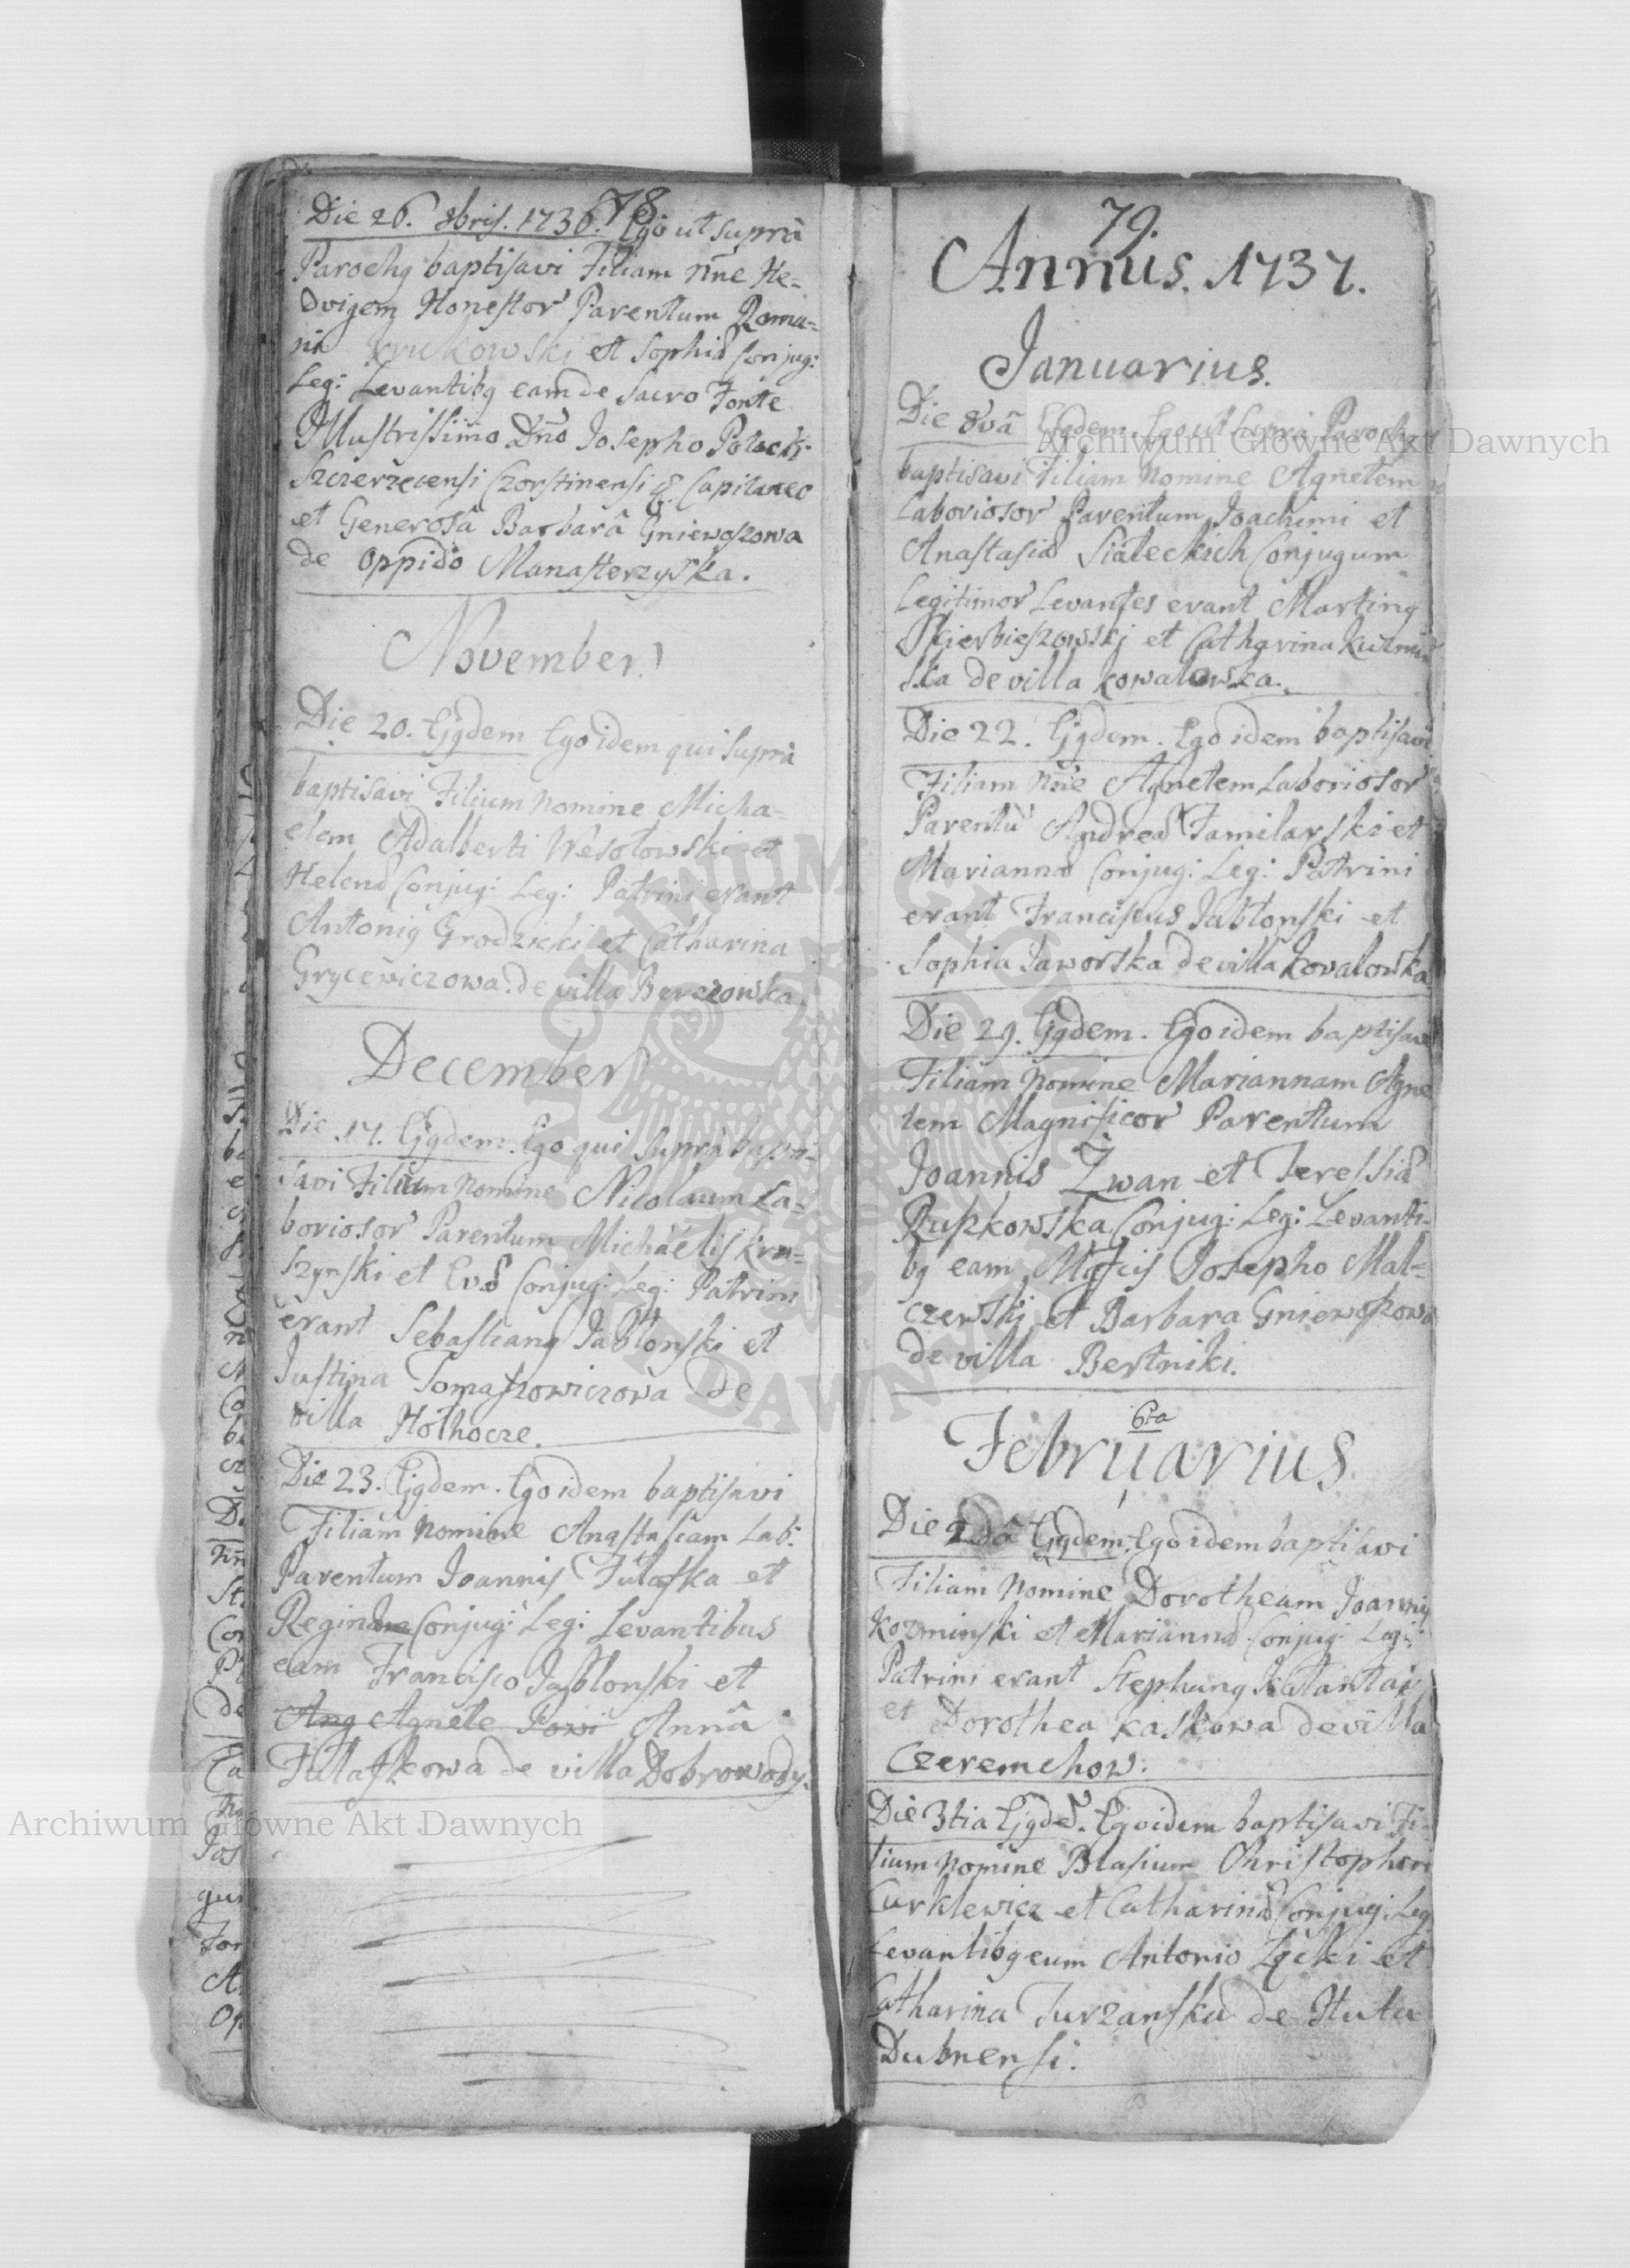 78.
Die 26. 8bris. 1736. Ego ut supra
Parochq baptisavi Filiam nne He-
dvigem Honestor Parentum Roma-
ni Krukowski et Sophiæ Conjug:
Leg: Levantibq eam de Sacro Fonte
Illustrissimo Dno Josepho Potocki
Szczerzecensi Czorstinensi & Capitaneo
et Generosa Barbarâ Gniewoszowa
de Oppido Manasterzyska.
November
Die 20. Ejqdem Ego idem qui supra
baptisavi Filium nomine Micha-
elem Adalberti Wesołowski et
Helenæ Conjug: Leg: Patrini erant
Antoniq Grodzicki et Catharina
Grycewiczowa. de villa Berezowka.
December
Die 17. Ejqdem. Ego qui supra bapti-
savi Filium nomine Nicolaum La-
boriosor Parentum Michaelis Kru-
szynski et Evæ Conjug: Leg: Patrini
erant Sebastianq Jabłonski et
Justina Tomaszowiczowa de
villa Hołhocze.
Die 23. Ejqdem. Ego idem baptisavi
Filiam nomine Anastasiam Lab:
Parentum Joannis Fulaska et
Reginæ Conjug: Leg: Levantibus
eam Francisco Jabłonski et
Ang Agnete Anna
Fulaskowa de villa Dobrowody.
79.
Annus. 1737.
Januarius.
Die 8va Ejqdem. Ego ut supra Paroch
baptisavi Filiam nomine Agnetem
Laboriosor Parentum Joachimi et
Anastasiæ Sialeckich Conjugum
Legitimor Levantes erant Martinq
Skierbieszowski et Catharina Kuzmin
ska de villa Kowalowka.
Die 22. Ejqdem. Ego idem baptisavi
Filiam nne Agnetem Laboriosor
Parentu Andreæ Familarski et
Mariannæ Conjug: Leg: Patrini
erant Franciscus Jabłonski et
Sophia Jaworska de villa Kovalowka
Die 29. Ejqdem. Ego idem baptisavi
Filiam nomine Mariannam Agne
tem Magnificor Parentum
Joannis Zwan et Teressiæ
Ruszkowska Conjug: Leg: Levanti-
bq eam Mgfcis Josepho Mal-
czewski et Barbara Gniewoszowa
de villa Bertniki.
6ta
Februarius
Die 2da Ejqdem. Ego idem baptisavi
Filiam nomine Dorotheam Joannis
Kozminski et Mariannæ Conjug: Leg:
Patrini erant Stephanq Kałantaj
et Dorothea Kaskowa de villa
Czeremchow.
Die 3tia Ejqde. Ego idem baptisavi Fi-
lium nomine Blasium Christophori
Curklewicz et Catharinæ Conjug: Leg
Levantibq eum Antonio Łącki et
Catharina Turzanska de Huta
Dubnensi.
Archiwum Główne Akt Dawnych
Archiwum Główne Akt Dawnych